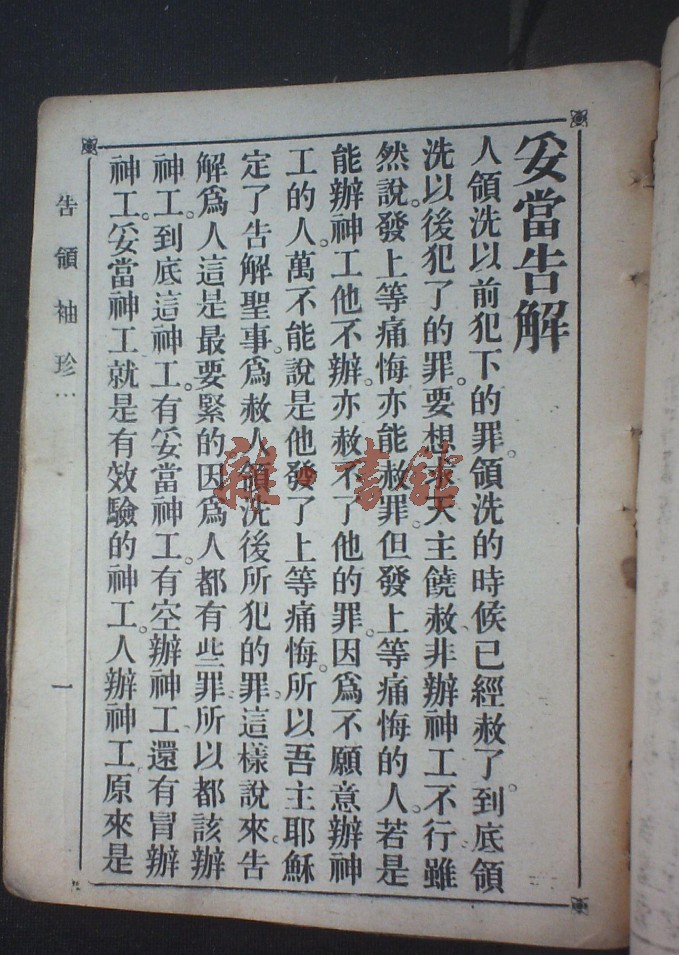 妥當告解
人領洗以前犯下的罪。領洗的時候已經赦了。到底領
洗以後犯了的罪。要想求天主饒赦、非辦神工不行、雖
然說、發上等痛悔、亦能赦罪。但發上等痛悔的人。若是
能辦神工他不辦、亦赦不了他的罪。因爲不願意辦神
工的人。萬不能說是他發了上等痛悔。所以吾主耶穌
定了告解聖事。爲赦人領洗後所犯的罪、這樣說來、告
解爲人這是最要緊的因爲人都有些罪所以都該辦
神工。到底這神工。有妥當神工。有空辦神工、還有冒辦
神工。妥當神工就是有效驗的神工。人辦神工、原來是
告領袖珍…
一
雜·書館